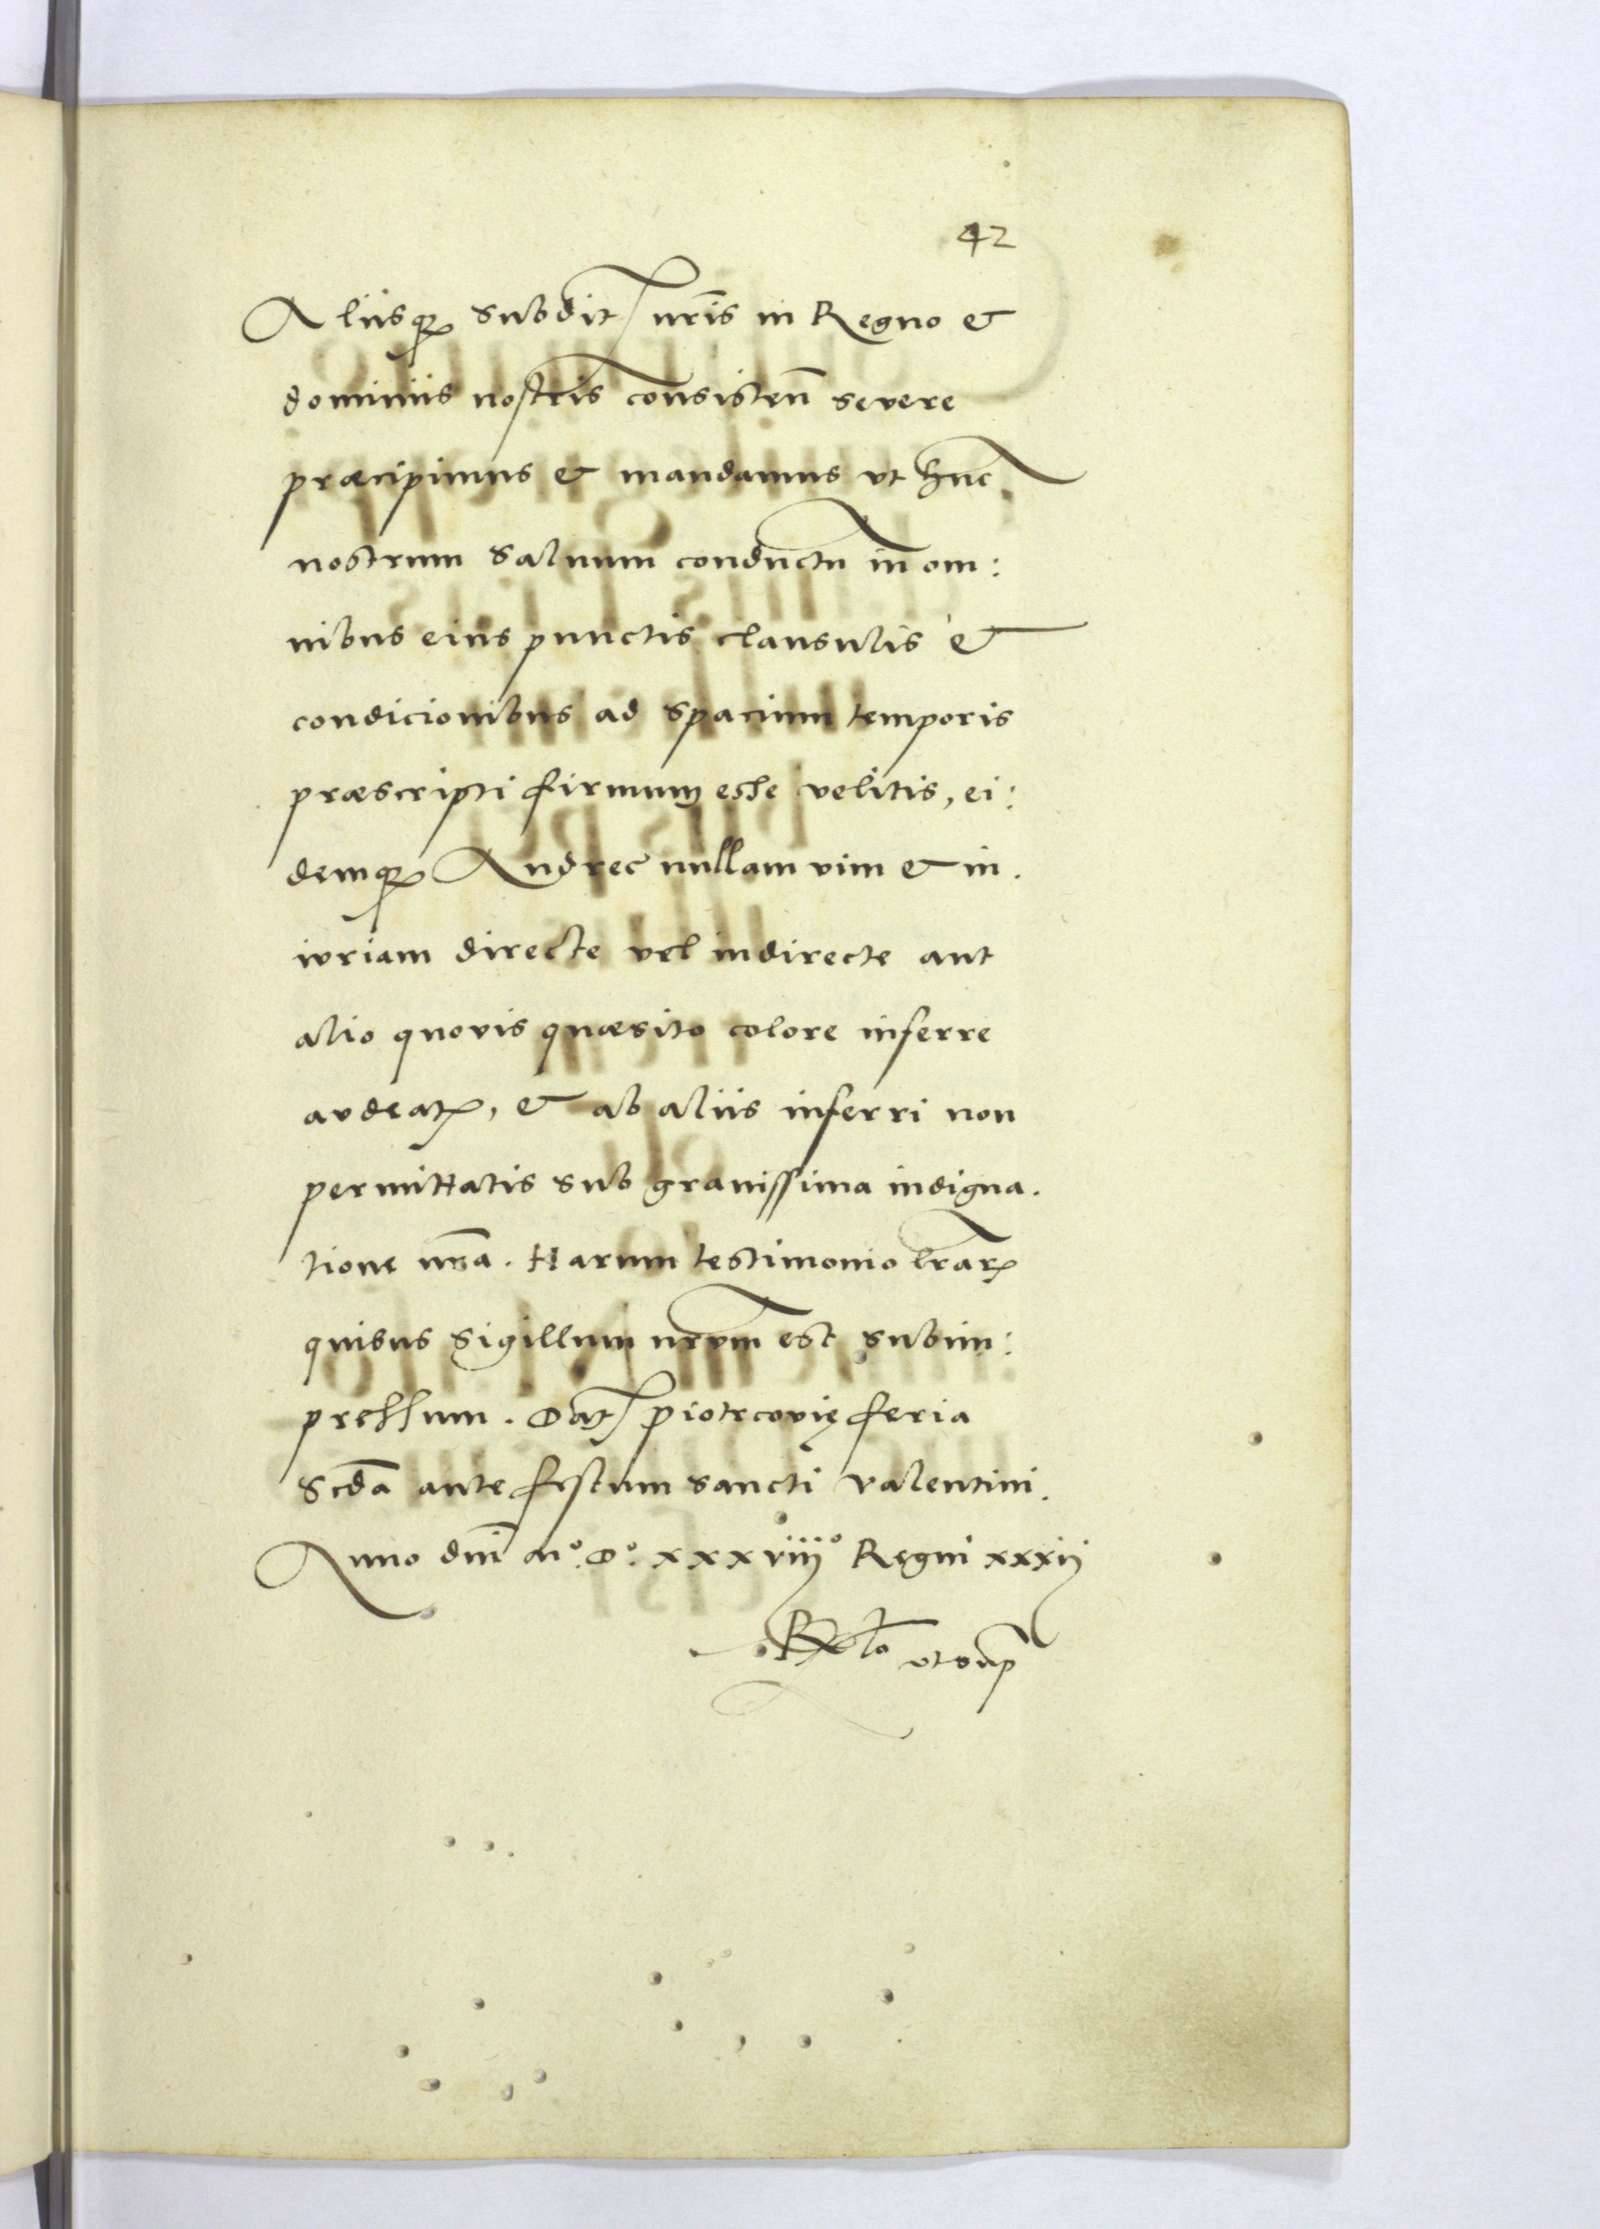 42
Aliisqꝫ subdit nr̃is in Regno &
dominiis nostris consisteñ severe
præcipimus & mandamus vt hunc
nostrum saluum conductu in om:
nibus eius punctis clausulis &
condicionibus ad spacium temporis
præscripti firmum esse velitis, ei:
demqꝫ Andreę nullam vim & in.
iuriam directe vel indirecte aut
alio quovis quæsito colore inferre
audeatꝭ, & ab aliis inferri non
permittatis sub gravissima indigna.
tione nr̃a. Harum testimonio lr̃arꝫ
quibus Sigillum nr̃vm est subim:
pressum. Datꝭ piotrcovię feria
Scdã ante festum sancti valentini.
Anno dnĩ M°. D°. xxxviiij° Regni xxxij
Rlõ vt sup